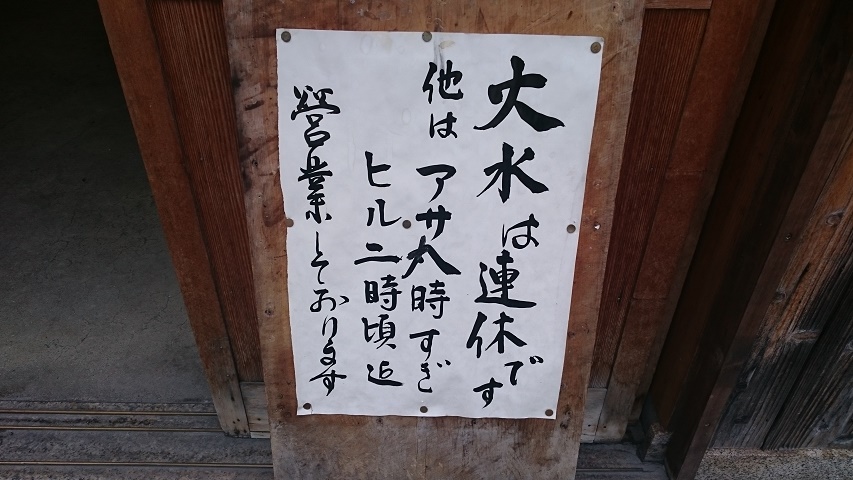 火水は連休です
他は アサ九時すぎ
ヒル二時頃迄
營業しております